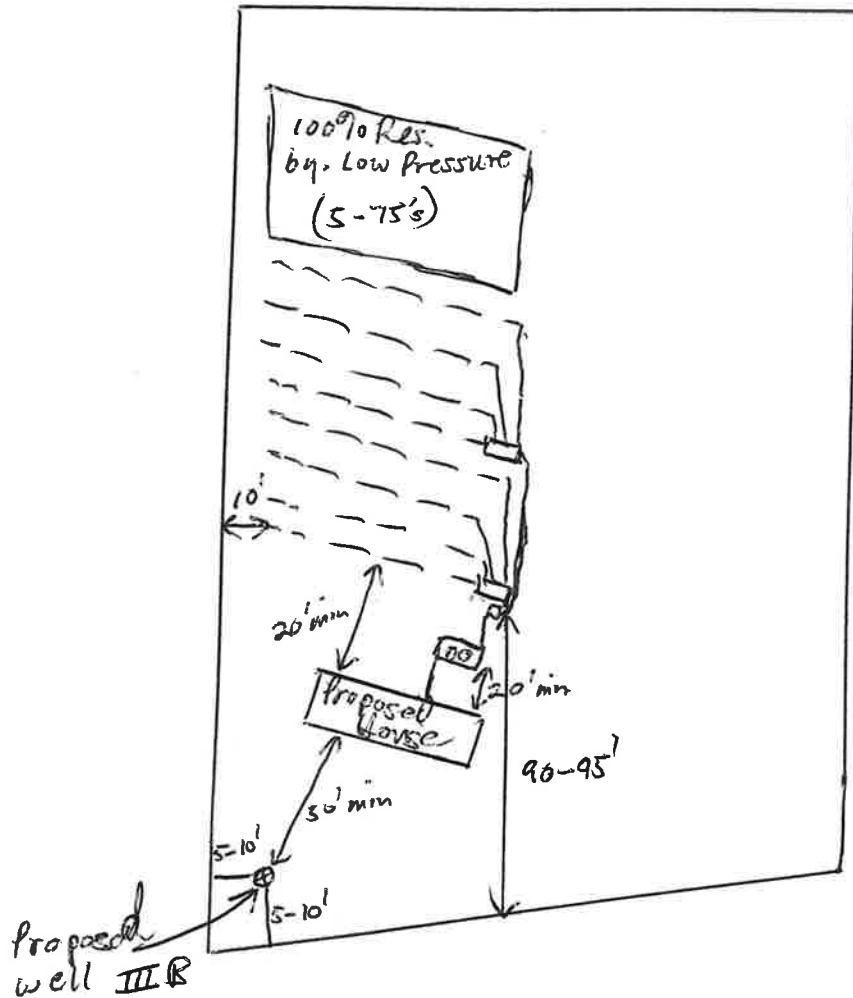 100% Res.
by. Low Pressure
(5-75's)
10'
20' min
20' min
Proposed
House
90-95'
50' min
5-10'
5-10'
Proposed
well III B